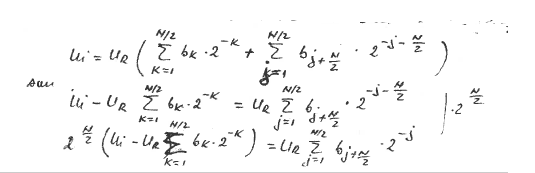 u_i = u_R ( Σ_{K=1}^{N/2} b_K · 2^{-K} + Σ_{j=1}^{N/2} b_{j+N/2} · 2^{-j-N/2} )
u_i - u_R Σ_{K=1}^{N/2} b_K · 2^{-K} = u_R Σ_{j=1}^{N/2} b_{j+N/2} · 2^{-j-N/2} | · 2^{N/2}
2^{N/2} ( u_i - u_R Σ_{K=1}^{N/2} b_K · 2^{-K} ) = u_R Σ_{j=1}^{N/2} b_{j+N/2} · 2^{-j}